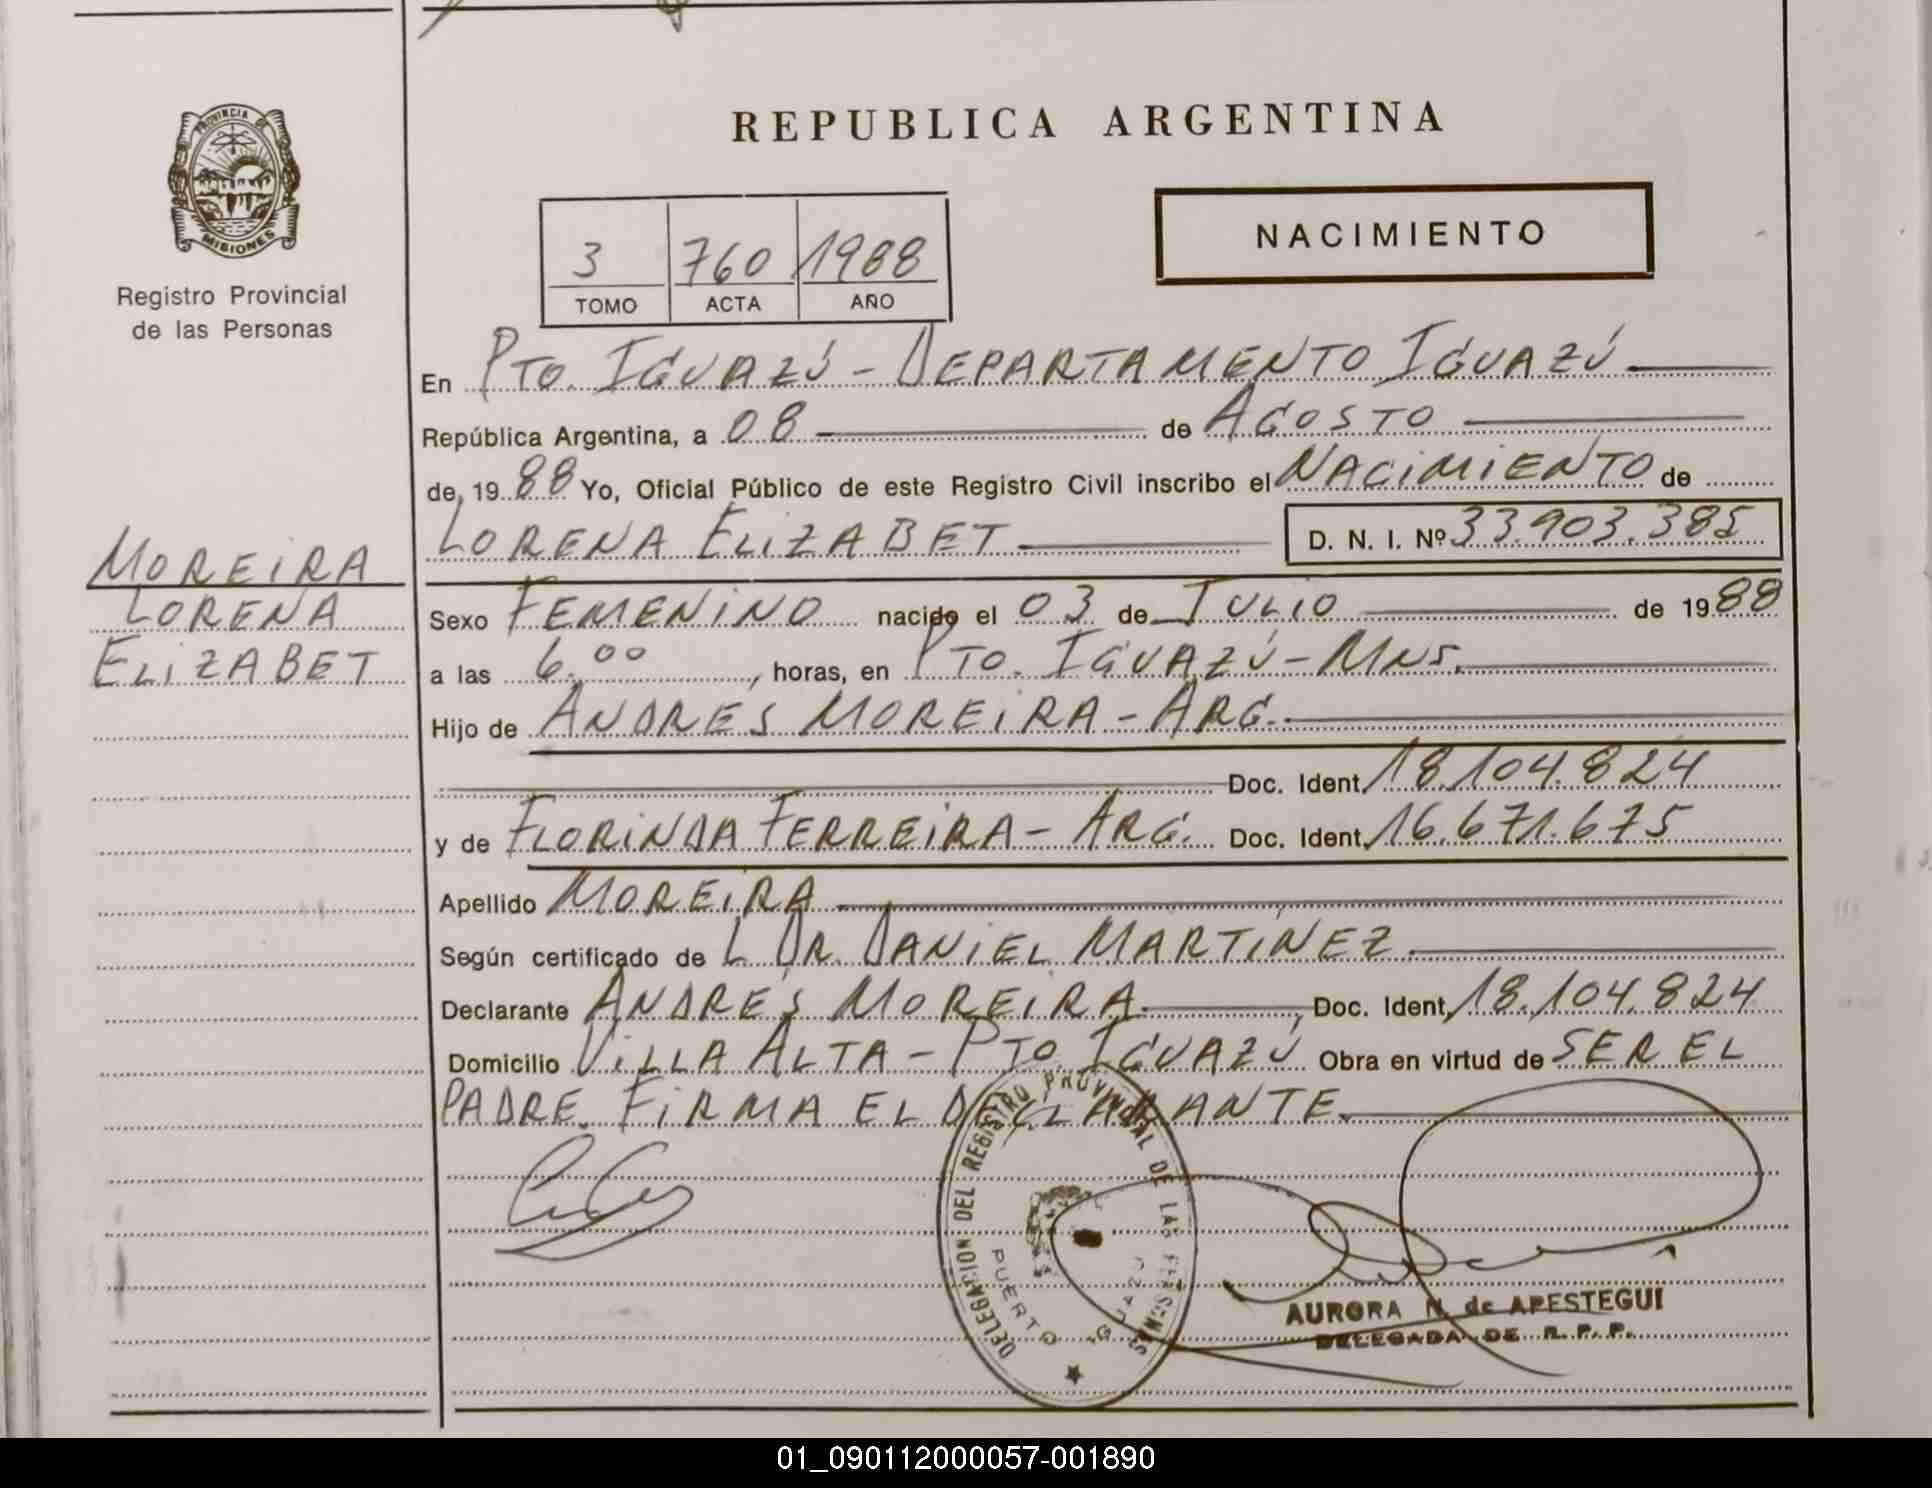 PROVINCIA DE
MISIONES
Registro Provincial
de las Personas
MOREIRA
LORENA
ELIZABET
REPUBLICA ARGENTINA
3 760 1988
TOMO ACTA AÑO
NACIMIENTO
En PTO. IGUAZÚ - DEPARTAMENTO IGUAZÚ
República Argentina, a 08 de AGOSTO
de 19 88 Yo, Oficial Público de este Registro Civil inscribo el NACIMIENTO de
LORENA ELIZABET D. N. I. Nº 33.903.385
Sexo FEMENINO nacido el 03 de JULIO de 19 88
a las 6.00, horas, en PTO. IGUAZÚ - MNS.
Hijo de ANDRES MOREIRA - ARG.
Doc. Ident. 18.104.824
y de FLORINDA FERREIRA - ARG. Doc. Ident. 16.671.675
Apellido MOREIRA
Según certificado de L DR. DANIEL MARTÍNEZ
Declarante ANDRÉS MOREIRA, Doc. Ident. 18.104.824
Domicilio VILLA ALTA - PTO IGUAZÚ Obra en virtud de SER EL
PADRE. FIRMA EL DECLARANTE
DELEGACION DEL REGISTRO PROVINCIAL DE LAS PERSONAS
PUERTO IGUAZU
AURORA N. de APESTEGUI
DELEGADA DE R. P. P.
01_090112000057-001890